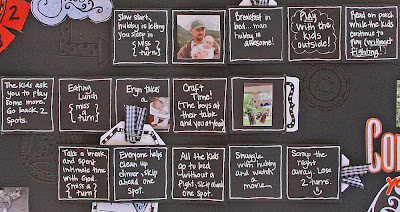 Slow start,
hubby is letting
you sleep in.
{miss a
turn}
Breakfast in
bed... man
hubby is
awesome!
Play
with the
kids
outside!
Read on porch
while the kids
continue to
play (without
fighting!)
The kids ask
you to play
some more.
Go back 2
spots.
Eating
Lunch
{miss a
turn}
Eryn takes
a
Craft
Time!
(The boys at
their table
and you at yours)
Take a break
and spend
intimate time
with God.
{miss a
turn}
Everyone helps
clean up
dinner, skip
ahead one
spot.
All the kids
go to bed
without a
fight, skip ahead
one spot.
Snuggle
with hubby
and watch
a movie.
Scrap the
night
away. Lose
2 turns.